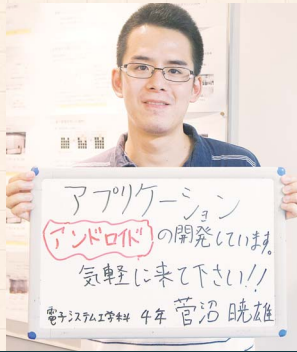 アプリケーション
アンドロイドの開発しています。
気軽に来て下さい!!
電子システム工学科 4年 菅沼 暁雄